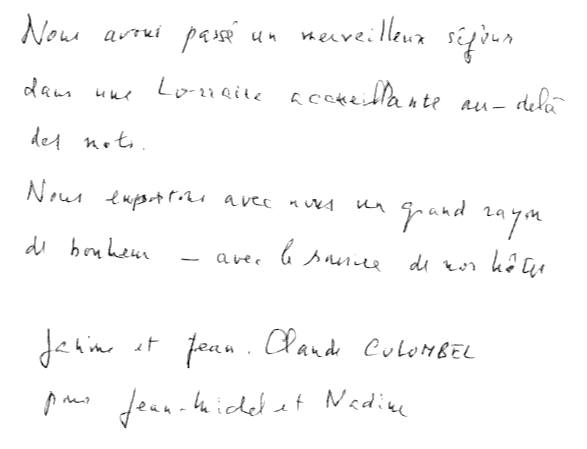 Nous avons passé un merveilleux séjour
dans une Lorraine accueillante au-delà
des mots.
Nous emportons avec nous un grand rayon
de bonheur - avec le sourire de nos hôtes
et Jean. Claude COLOMBEL
pour Jean-Michel et Nadine